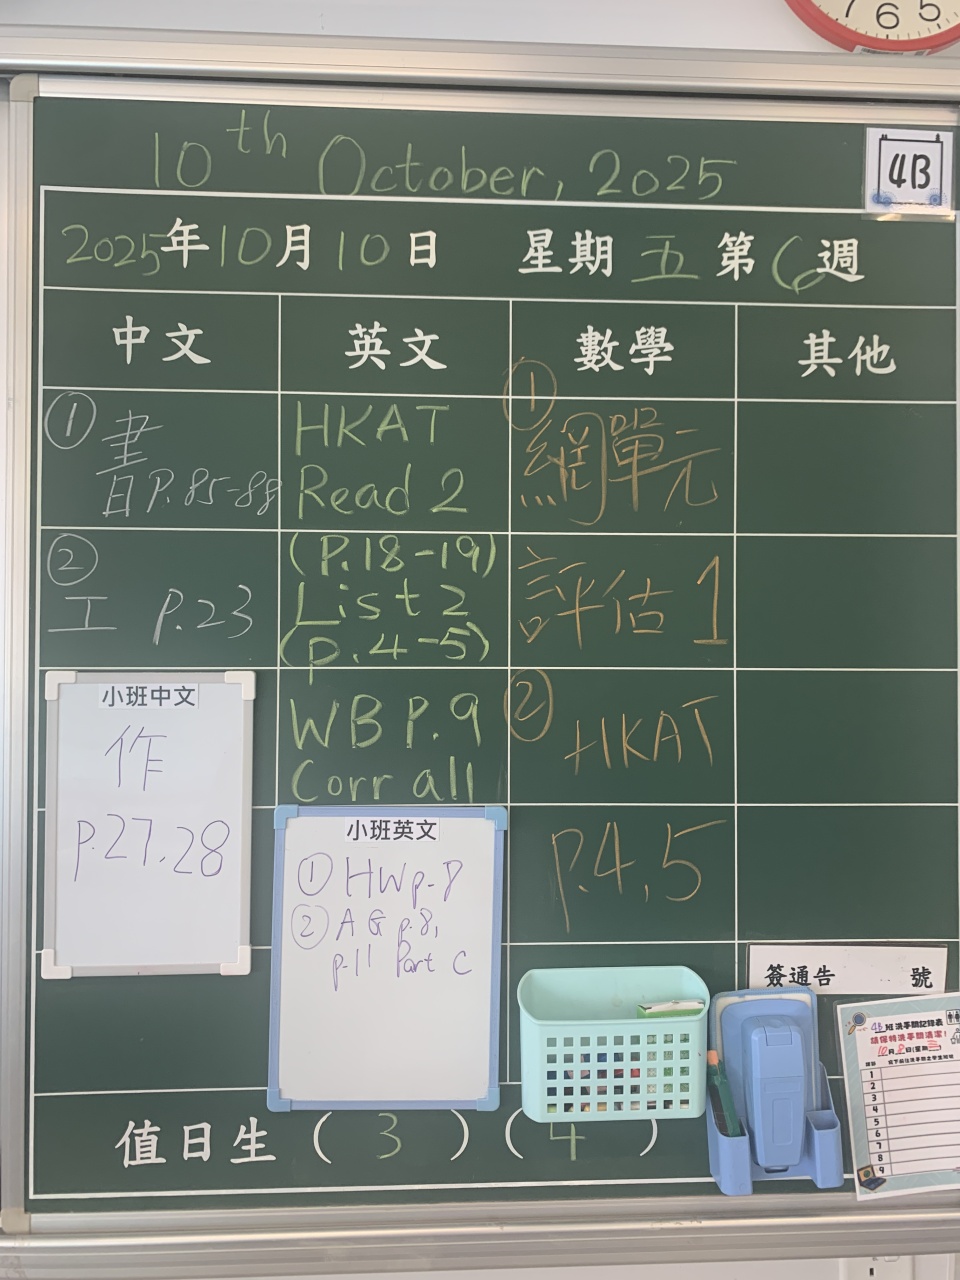 7 6 5
10th October, 2025
4B
2025年10月10日 星期五第6週
中文 英文 數學 其他
① 書 P.85-88
② 工 P.23
HKAT
Read 2
(P.18-19)
List 2
(p.4-5)
WB P.9
Corr all
① 網單元
評估1
② HKAT
p.4,5
小班中文
作
p.27,28
小班英文
① HW p.8
② AG p.8,
p.11 Part C
簽通告 號
4B班洗手間記錄表
請保持洗手間清潔!
1
2
3
4
5
6
7
8
9
值日生 (3) (4)